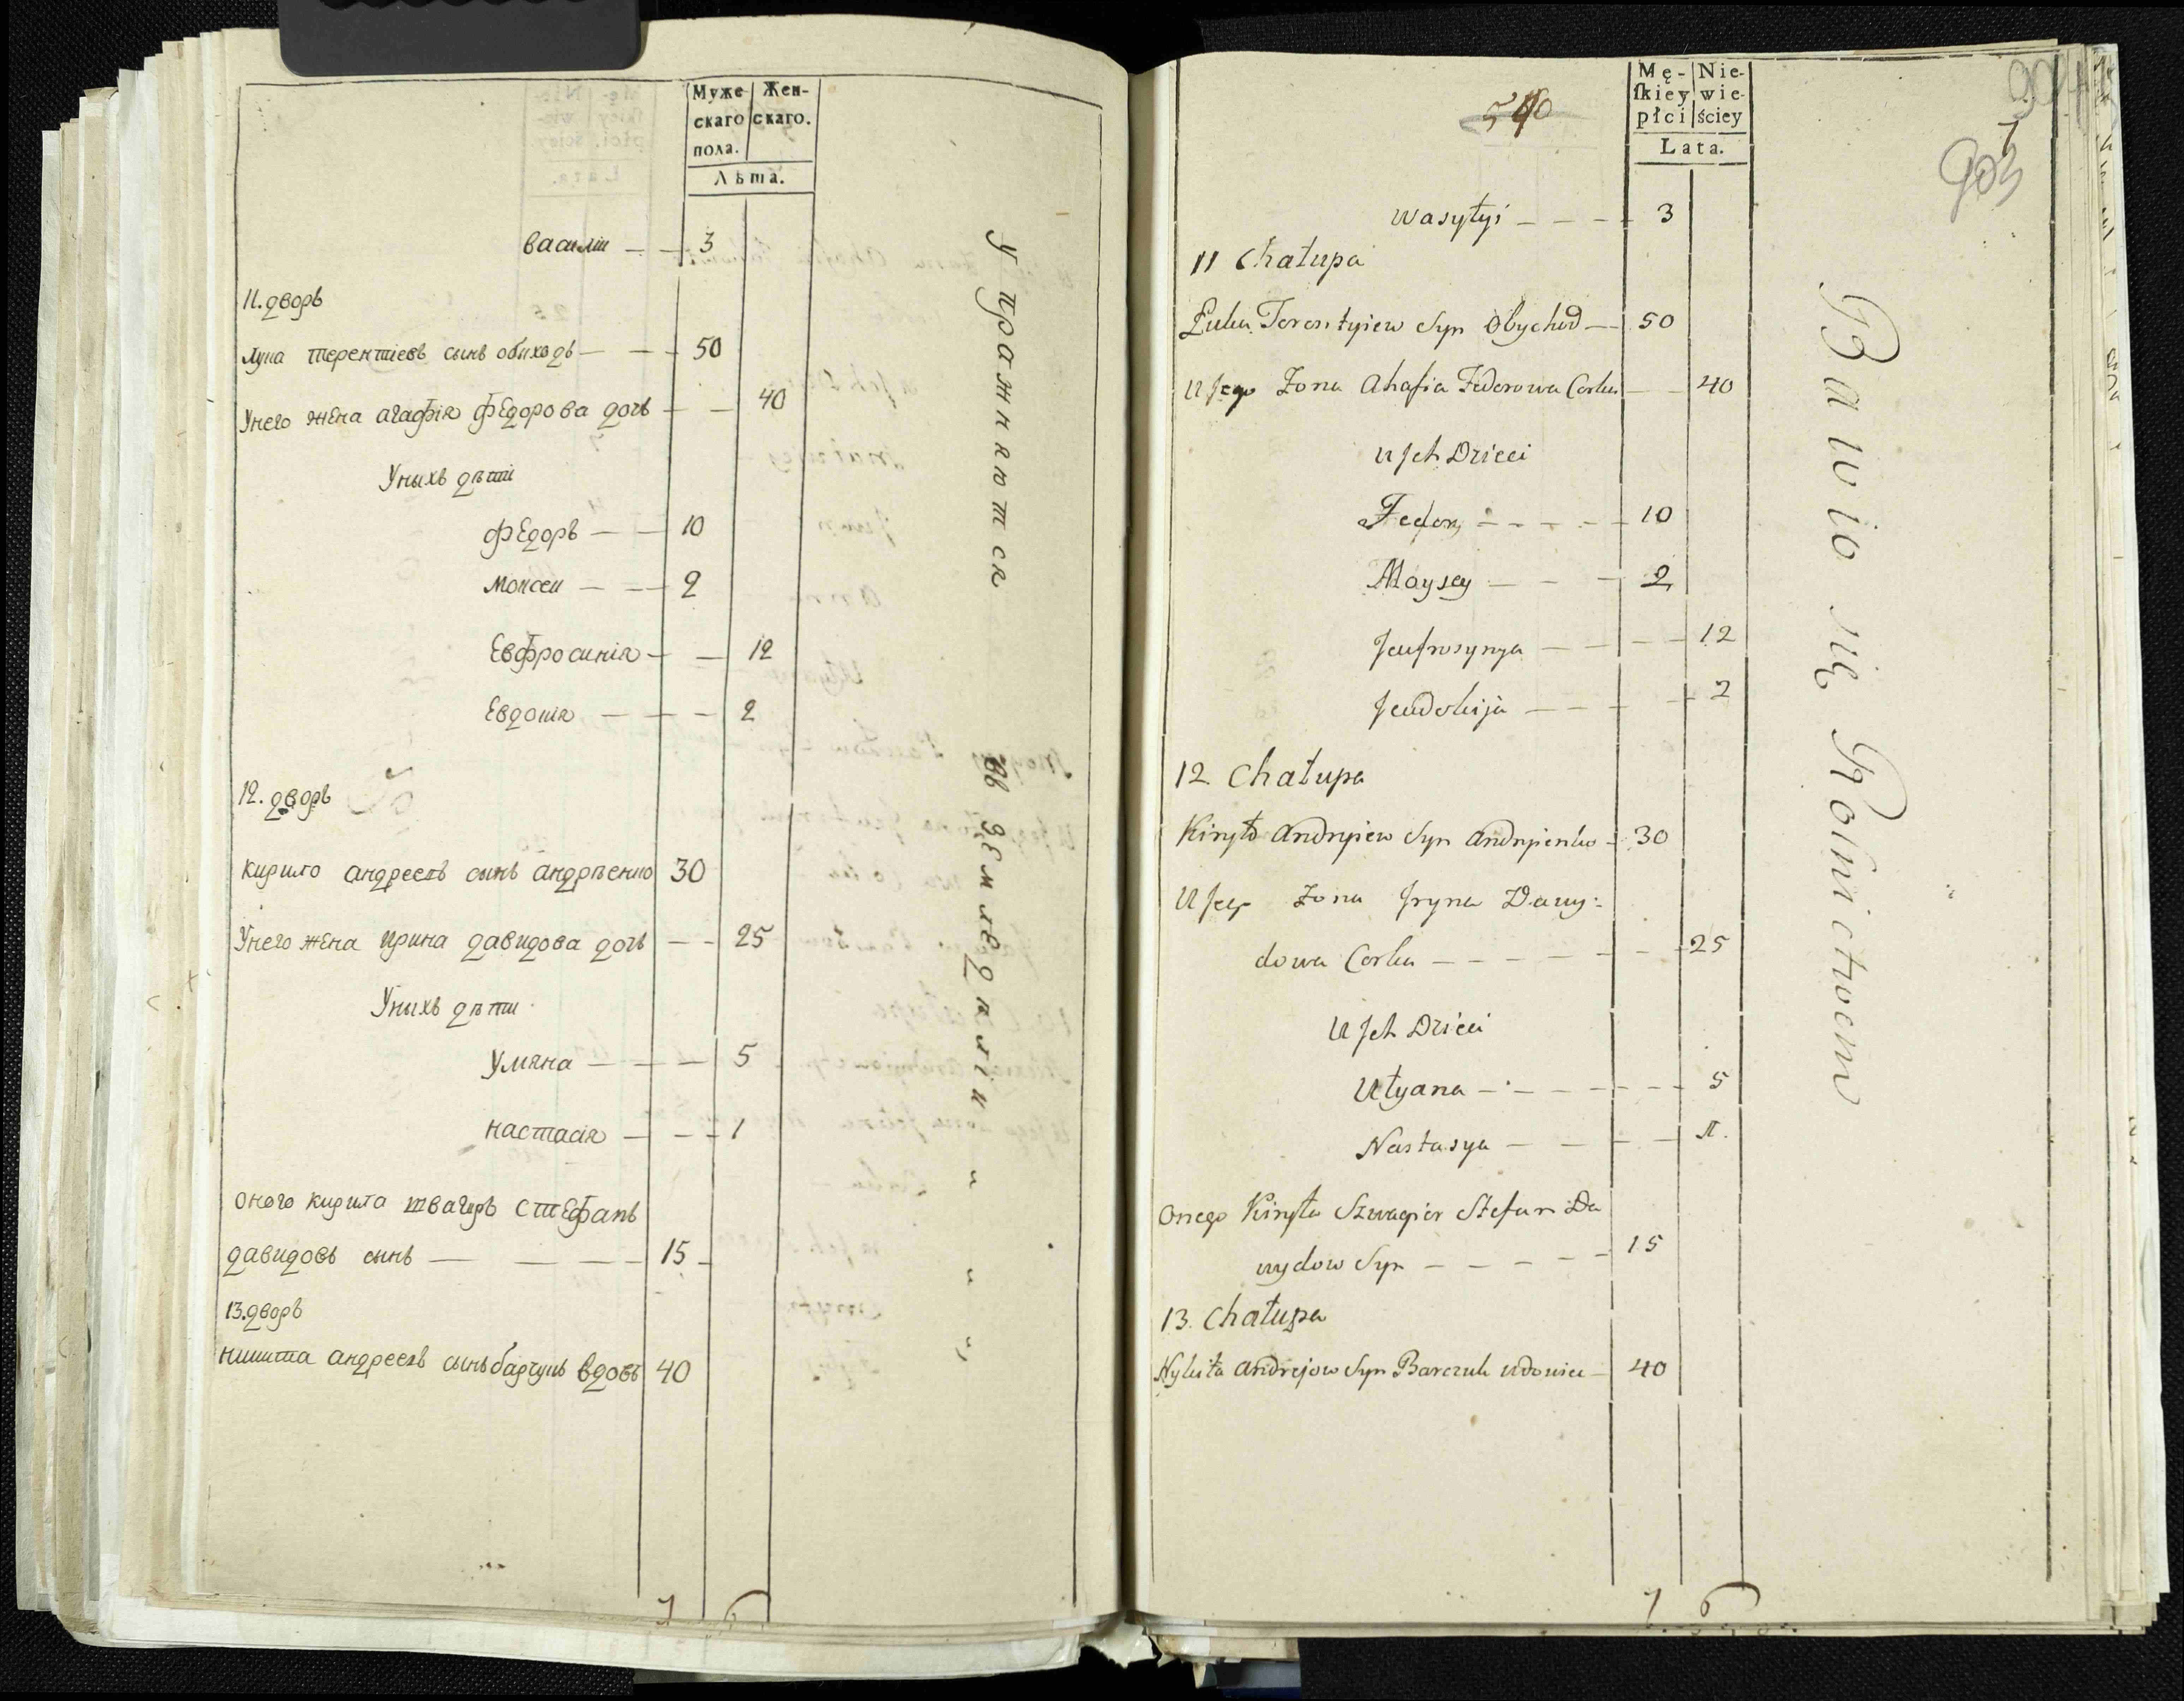 Муже Жен-
скаго скаго.
пола.
Лѣта.
василии — — 3
11. дворъ
лука терентіевъ сынъ обиходъ — — 50
Унего жена агафія федорова дочь — — 40
Уныхъ дѣти
федоръ — — 10
моисеи — — 2
Евфросинія — — 12
Евдокія — — — 2
12. дворъ
кирило андреевъ сынъ андрѣенко 30
Унего жена ирина давидова дочь — — 25
Уныхъ дѣти
Уляна — — — 5
настасія — — — 1
оного кирила швагиръ стефанъ
давидовъ сынъ — — — — 15
13. дворъ
никита андреевъ сынъ барчукъ вдовъ 40
7 6
Упражняются въ земледѣліи " " "
540
Mę- Nie-
skiey wie-
płci ściey
Lata.
903
Wasyłyi — — — 3
11 Chałupa
Łuka Terentyiew Syn Obychod — 50
U Jego Żona Ahafia Fedorowa Corka — 40
U Jch Dzieci
Fedor — — — — 10
Moysey — — — 2
Jeufrosynya — — — — 12
Jeudokija — — — — 2
12 Chałupa
Kiryło Andryiew Syn Andryienko — 30
U Jego Żona Jryna Dawy:
dowa Corka — — — — — — 25
U Jch Dzieci
Ulyana — — — — — — 5
Nastasya — — — — 1.
Onego Kiryła Szwagier Stefan Da
wydow Syn — — — — — 15
13. Chałupa
Nykita Andrejow Syn Barczuk udowiec — 40
7 6
Bawio się Rolnictwem